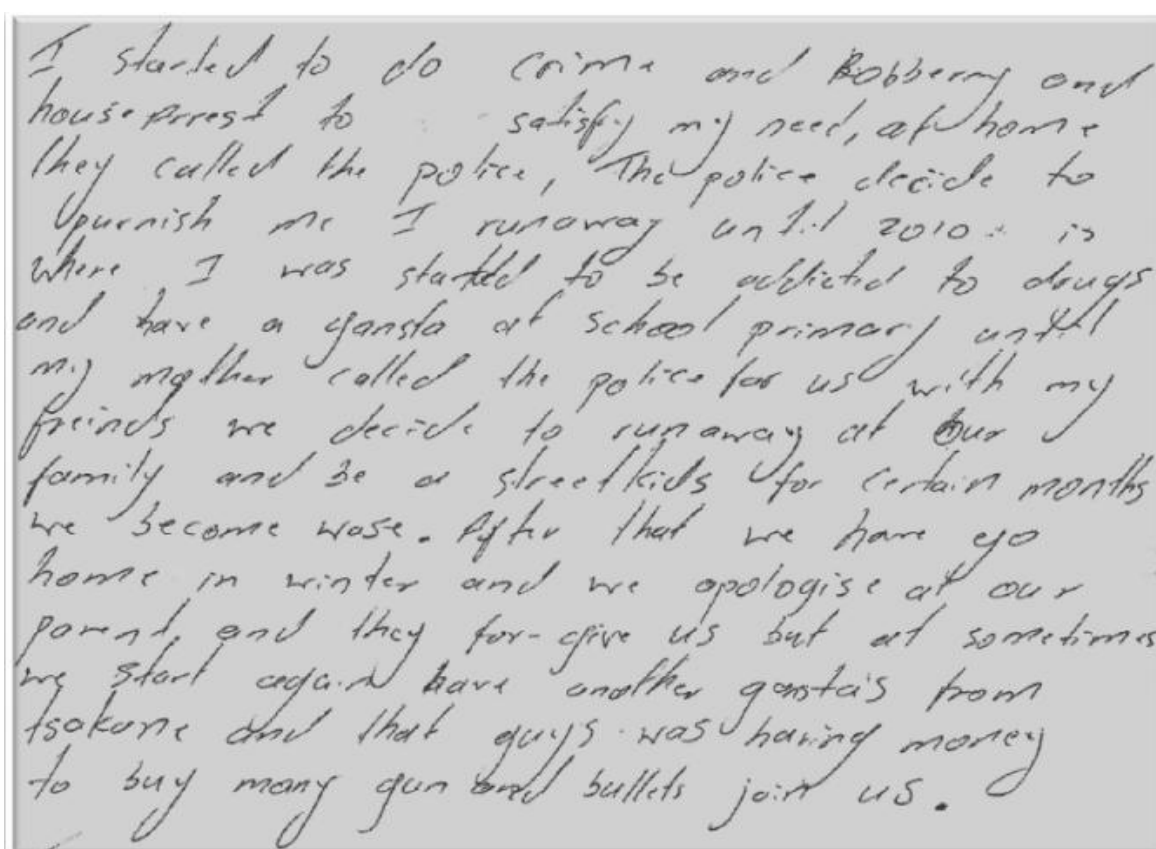 I started to do crime and Robberry and
housearrest to satisfy my need, at home
they called the police, The police decide to
purnish me I runaway until 2010 is
where I was started to be addicted to drugs
and have a gansta at school primary until
my mother called the police for us with my
freinds we decide to runaway at our
family and be a streetkids for certain months
we become wose. After that we have go
home in winter and we apologise at our
parent, and they for-give us but at sometimes
we start again have another gansta's from
tsakane and that guy's was having money
to buy many gun and bullets join us.